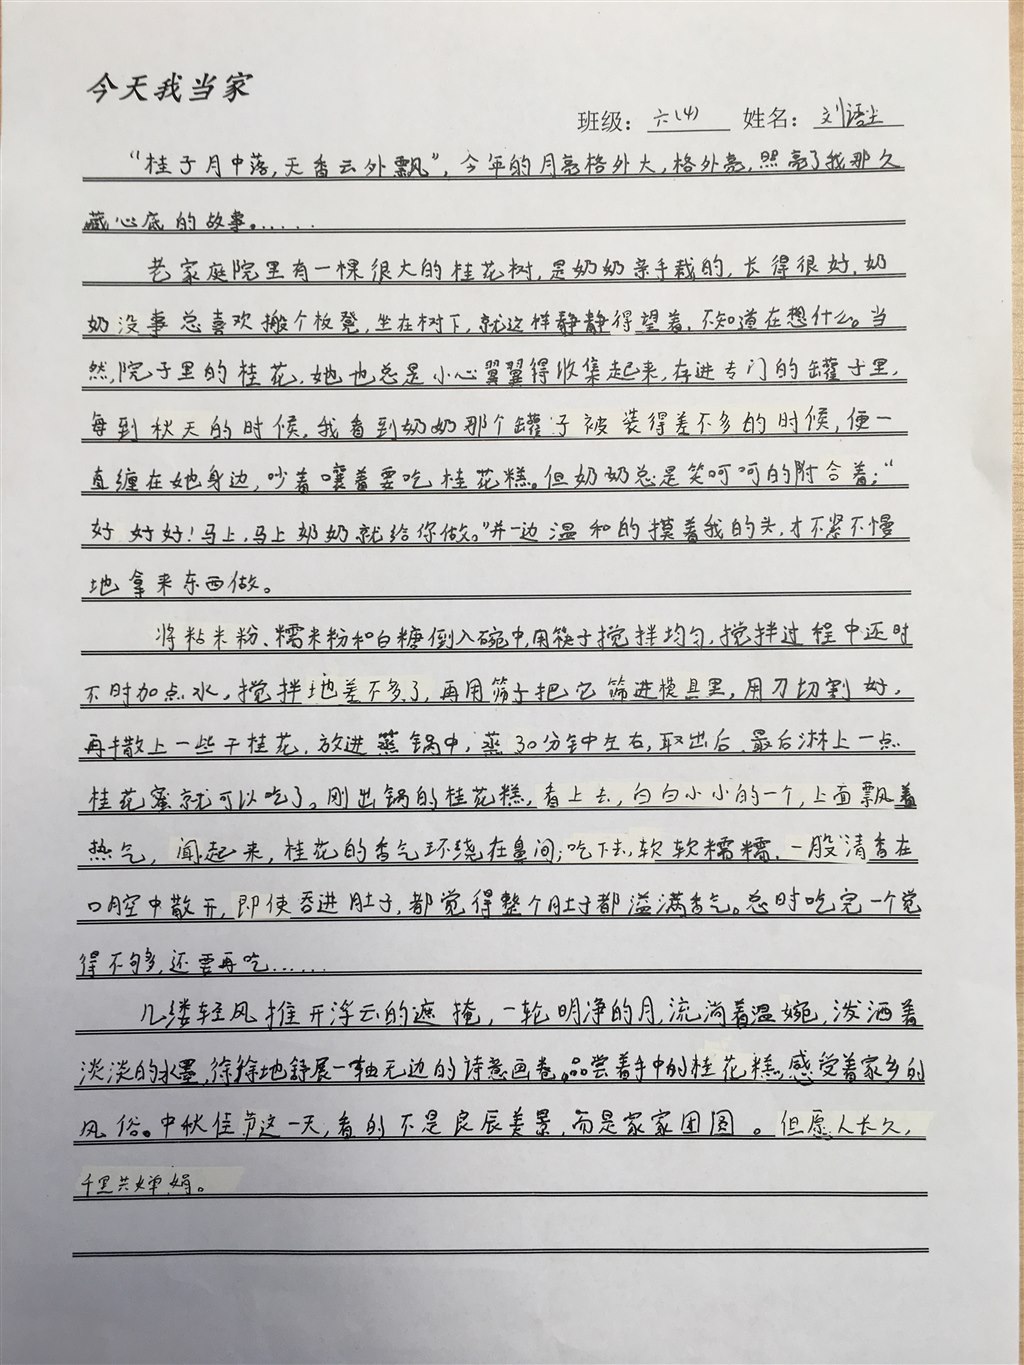 今天我当家
班级：六(4) 姓名：刘语尘
“桂子月中落，天香云外飘”，今年的月亮格外大，格外亮，照亮了我那久
藏心底的故事。……
老家庭院里有一棵很大的桂花树，是奶奶亲手栽的，长得很好，奶
奶没事总喜欢搬个板凳，坐在树下，就这样静静得望着，不知道在想什么。当
然，院子里的桂花，她也总是小心翼翼得收集起来，存进专门的罐子里，
每到秋天的时候，我看到奶奶那个罐子被装得差不多的时候，便一
直缠在她身边，吵着嚷着要吃桂花糕。但奶奶总是笑呵呵的附合着；“
好好好！马上，马上奶奶就给你做。”并一边温和的摸着我的头，才不紧不慢
地拿来东西做。
将粘米粉、糯米粉和白糖倒入碗中，用筷子搅拌均匀，搅拌过程中还时
不时加点水，搅拌地差不多了，再用筛子把它筛进模具里，用刀切割好，
再撒上一些干桂花，放进蒸锅中，蒸30分钟左右，取出后，最后淋上一点
桂花蜜就可以吃了。刚出锅的桂花糕，看上去，白白小小的一个，上面飘着
热气，闻起来，桂花的香气环绕在鼻间；吃下去，软软糯糯，一股清香在
口腔中散开，即使吞进肚子，都觉得整个肚子都溢满香气。总时吃完一个觉
得不够，还要再吃……
几缕轻风推开浮云的遮掩，一轮明净的月，流淌着温婉，泼洒着
淡淡的水墨，徐徐地舒展一轴无边的诗意画卷。品尝着手中的桂花糕，感受着家乡的
风俗。中秋佳节这一天，看的不是良辰美景，而是家家团圆。但愿人长久，
千里共婵娟。